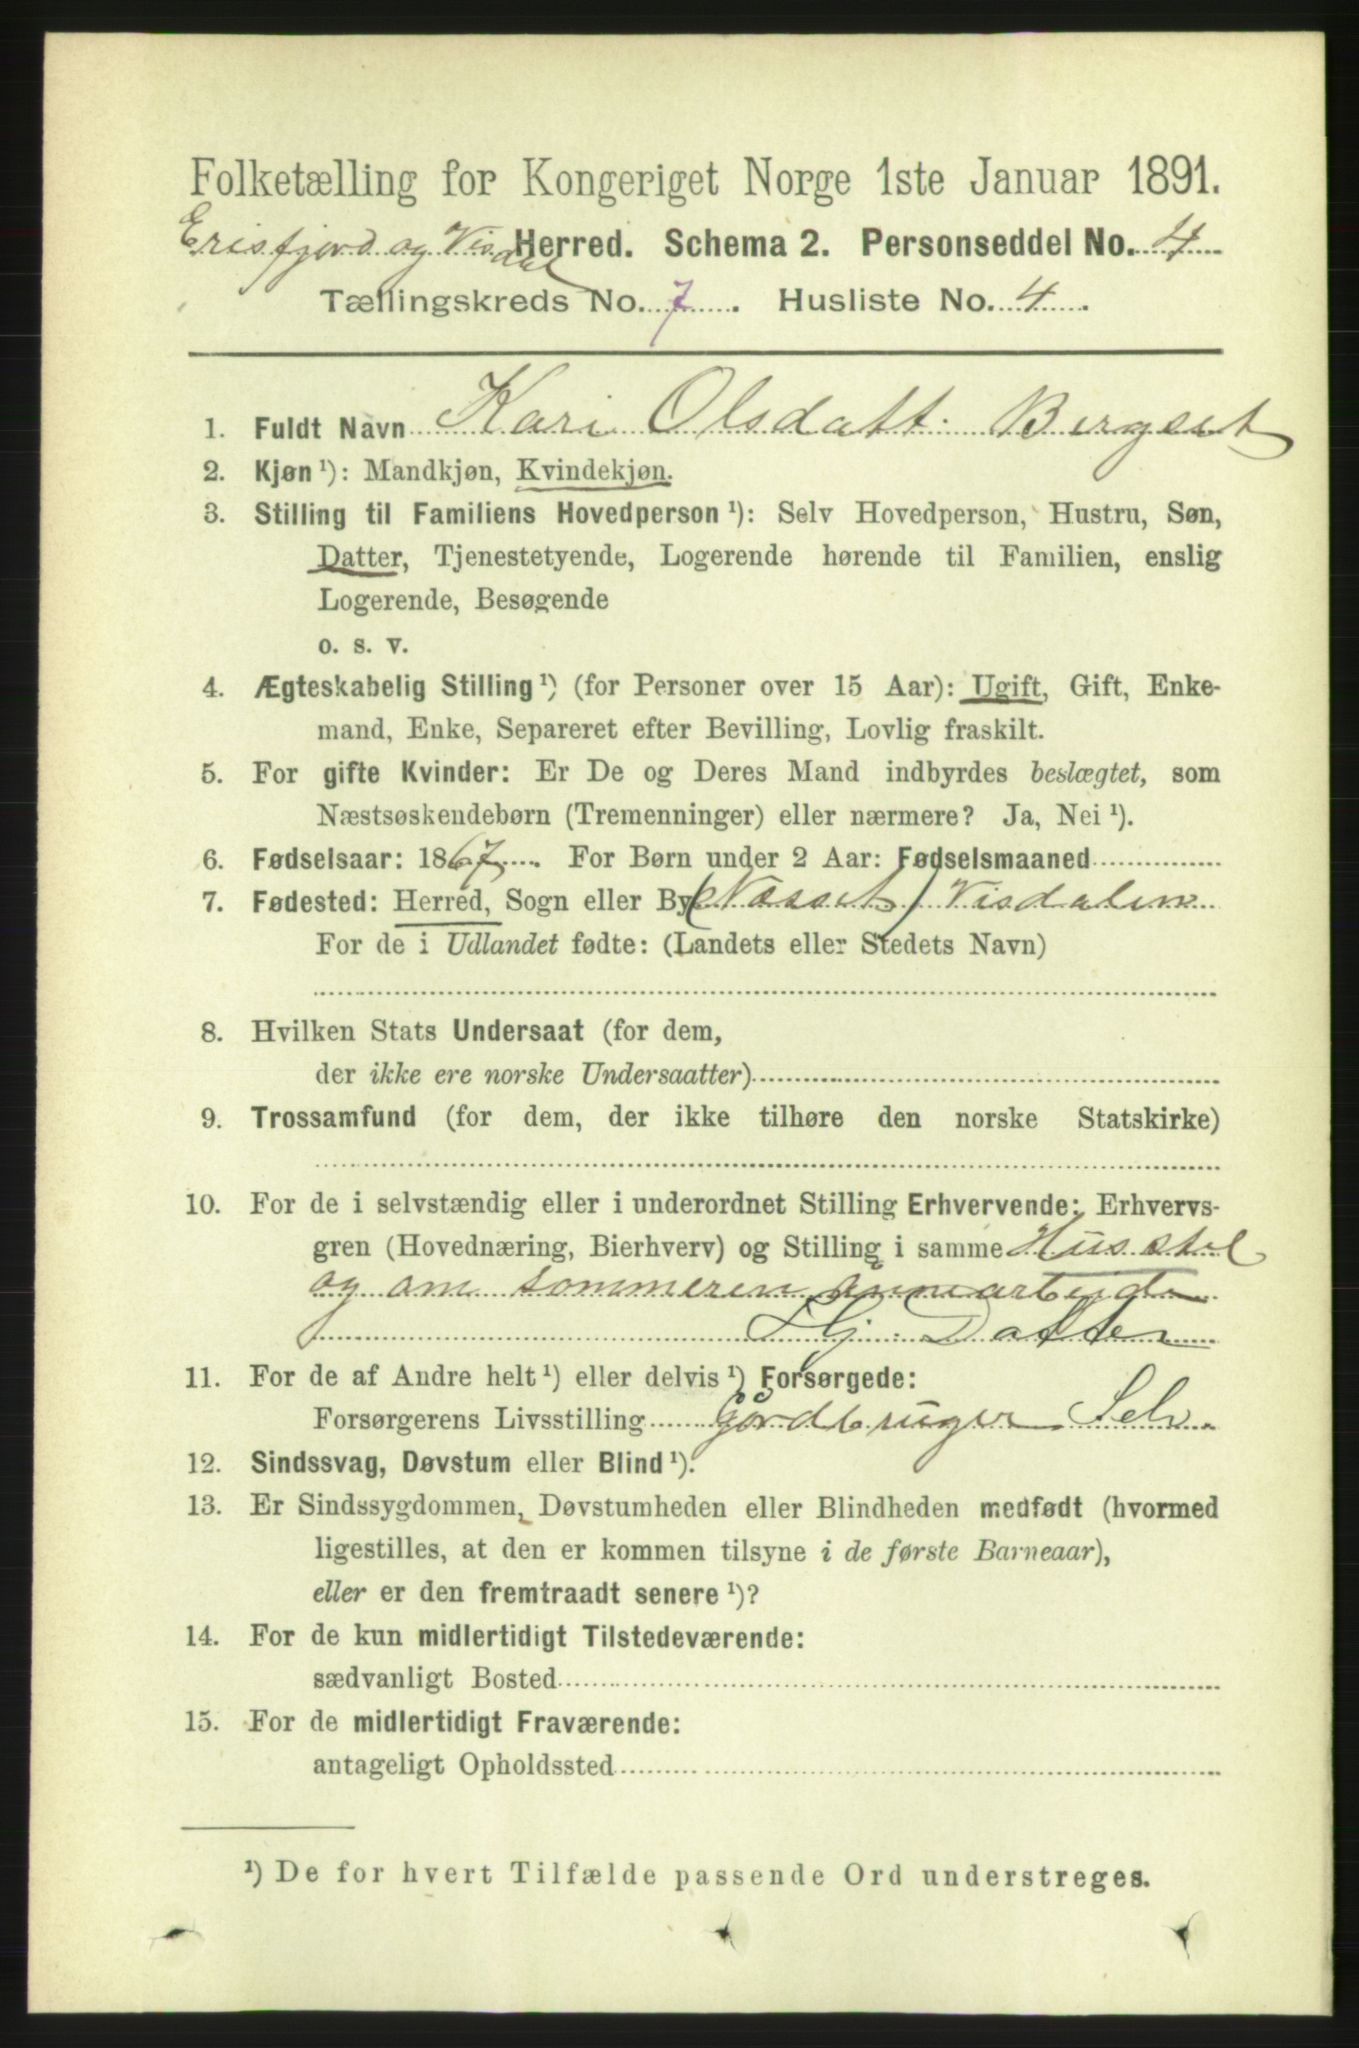 Folketælling for Kongeriget Norge 1ste Januar 1891.
Erisfjord og Visdal Herred. Schema 2. Personseddel No. 4
Tællingskreds No. 7. Husliste No. 4.
1. Fuldt Navn Kari Olsdatt. Bergset
2. Kjøn ¹): Mandkjøn, Kvindekjøn.
3. Stilling til Familiens Hovedperson ¹): Selv Hovedperson, Hustru, Søn,
Datter, Tjenestetyende, Logerende hørende til Familien, enslig
Logerende, Besøgende
o. s. v.
4. Ægteskabelig Stilling ¹) (for Personer over 15 Aar): Ugift, Gift, Enke-
mand, Enke, Separeret efter Bevilling, Lovlig fraskilt.
5. For gifte Kvinder: Er De og Deres Mand indbyrdes beslægtet, som
Næstsøskendebørn (Tremenninger) eller nærmere? Ja, Nei ¹).
6. Fødselsaar: 1867. For Børn under 2 Aar: Fødselsmaaned
7. Fødested: Herred, Sogn eller By (Næsset) Visdalen
For de i Udlandet fødte: (Landets eller Stedets Navn)
8. Hvilken Stats Undersaat (for dem,
der ikke ere norske Undersaatter)
9. Trossamfund (for dem, der ikke tilhøre den norske Statskirke)
10. For de i selvstændig eller i underordnet Stilling Erhvervende: Erhvervs-
gren (Hovednæring, Bierhverv) og Stilling i samme Husstel
og om sommeren
Hj. Datter
11. For de af Andre helt ¹) eller delvis ¹) Forsørgede:
Forsørgerens Livsstilling Gårdbruger Selv.
12. Sindssvag, Døvstum eller Blind ¹).
13. Er Sindssygdommen, Døvstumheden eller Blindheden medfødt (hvormed
ligestilles, at den er kommen tilsyne i de første Barneaar),
eller er den fremtraadt senere ¹)?
14. For de kun midlertidigt Tilstedeværende:
sædvanligt Bosted
15. For de midlertidigt Fraværende:
antageligt Opholdssted
¹) De for hvert Tilfælde passende Ord understreges.